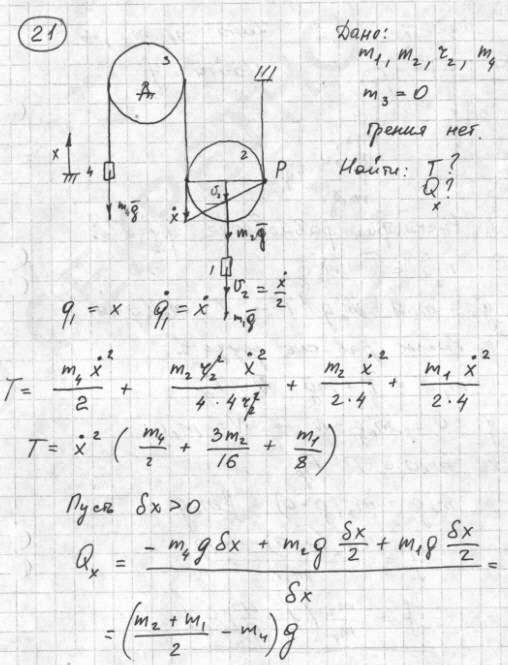 21
Дано:
m₁, m₂, r₂, m₄
m₃ = 0
Трения нет.
Найти: T?
Qₓ?
3
A
x
4
m₄g̅
2
P
v̅₂
ẋ
m₂g̅
1
v₂ = ẋ/2
m₁g̅
q₁ = x q̇₁ = ẋ
T = m₄ẋ²/2 + m₂r₂²ẋ²/(4·4r₂²) + m₂ẋ²/(2·4) + m₁ẋ²/(2·4)
T = ẋ² (m₄/2 + 3m₂/16 + m₁/8)
Пусть δx > 0
Qₓ = (−m₄gδx + m₂g δx/2 + m₁g δx/2)/δx =
= ((m₂ + m₁)/2 − m₄) g